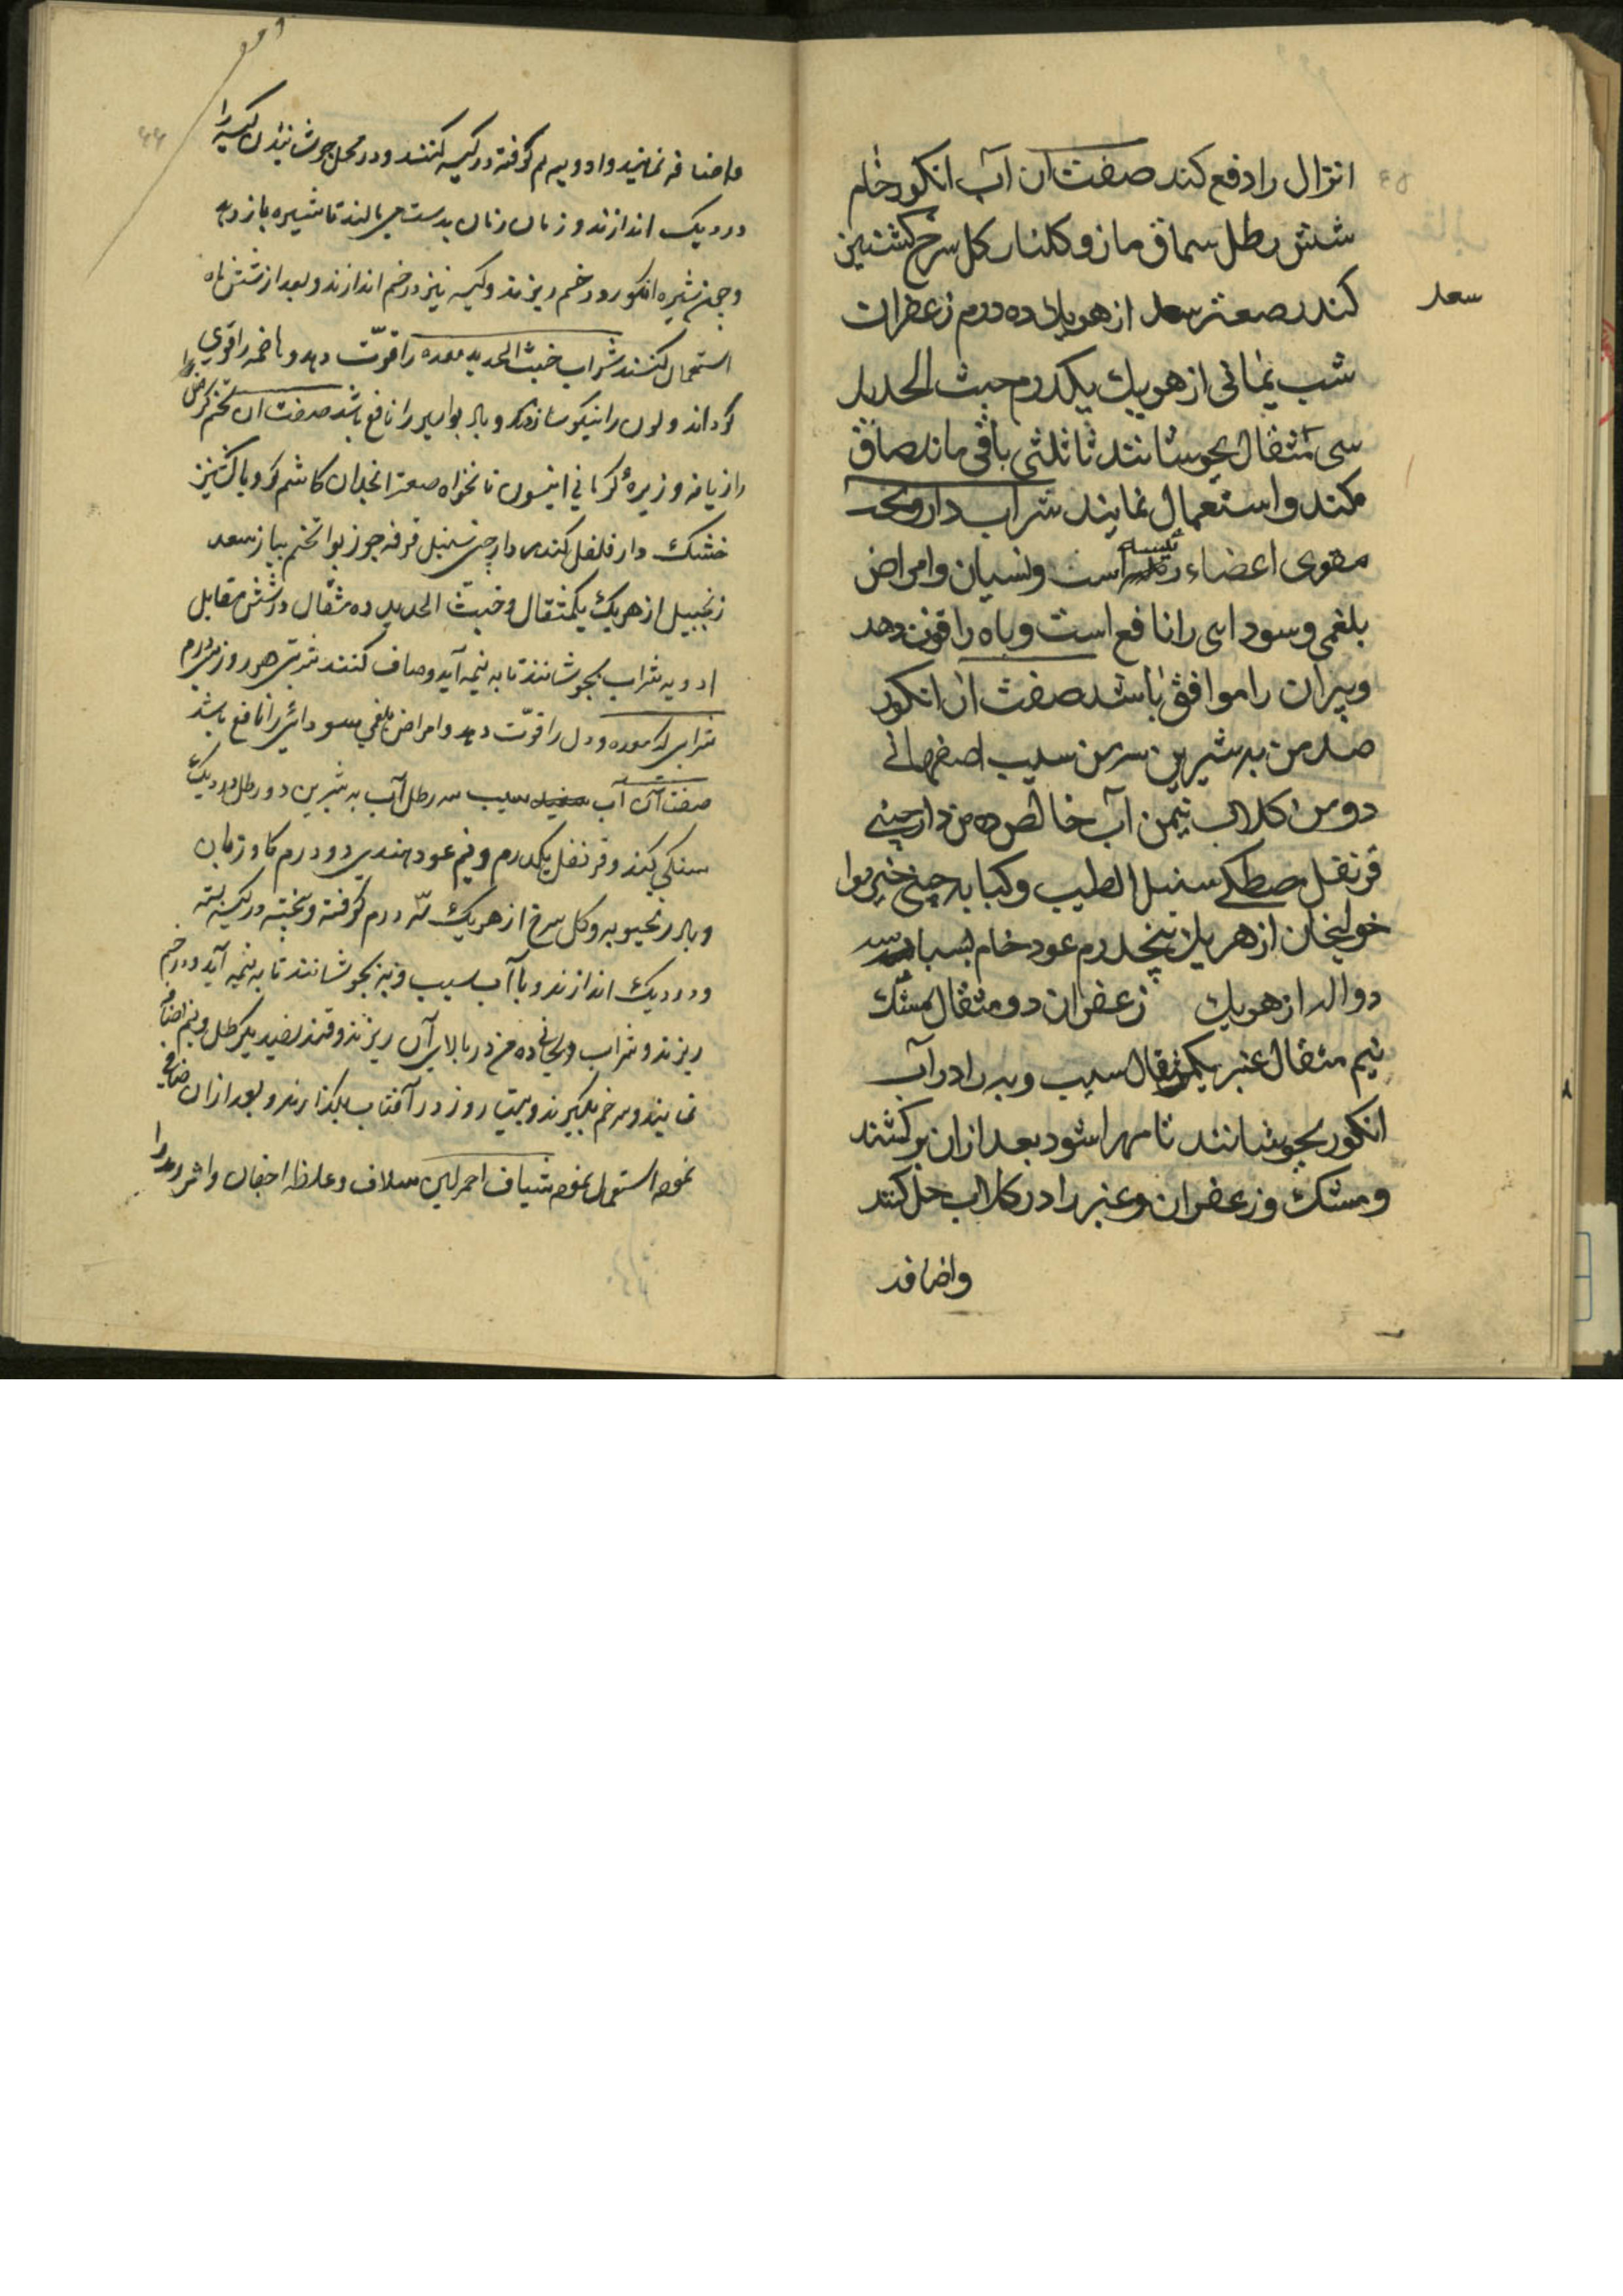 انزال را دفع کند صفت آن آب انکور خام
شش رطل سماق مازو کلنار کل سرخ کشنیز
کندر صعتر سعد از هر یک ده درم زعفران
سعد
شب یمانی از هر یک یکدرم خبث الحدید
سی مثقال بجوشانند تا ثلثی باقی ماند صاف
کنند و استعمال نمایند شراب دارو بخت
مقوی اعضاء رئیسه است و نسیان و امراض
بلغمی و سوداوی را نافع است و باه را قوت دهد
و پیران را موافق باشد صفت آن انکور
صد من به شیرین سی من سیب اصفهانی
دو من کلاب نیمن آب خالص ده من دارچینی
قرنفل مصطکی سنبل الطیب و کبابه چینی خیربوا
خولنجان از هر یک پنجدرم عود خام بسباسه
دواله از هر یک زعفران دو مثقال مشک
نیم مثقال عنبر یکمثقال سیب و به را در آب
انکور بجوشانند تا مهرا شود بعد از آن برکشند
و مشک و زعفران و عنبر را در کلاب حل کنند
واضافه
واضافه نمایند و ادویه هم کوفته در کیسه کنند و در محل جوشانیدن کیسه را
در دیک اندازند و زمان زمان بدست می مالند تا شیره باز دهد
و چون شیره انکور در خم ریزند و کیسه نیز در خم اندازند و بعد از شش ماه
استعمال کنند شراب خبث الحدید معده را قوّت دهد و هاضمه را قوی
کرداند و لون را نیکو سازد و بواسیر را نافع باشد صفت آن تخم کرفس
رازیانه و زیره کرمانی انیسون نانخواه صعتر انجدان کاشم کرویا کشنیز
خشک دارفلفل کندر دارچینی سنبل قرفه جوزبوا تخم پیاز سعد
زنجبیل از هر یک یکمثقال و خبث الحدید ده مثقال در شش مقابل
ادویه شراب بجوشانند تا به نیمه آید و صاف کنند شربتی هر روز سی درم
شرابی که معده و دل را قوّت دهد و امراض بلغمی سوداوی را نافع باشد
صفت آن آب سیب سه رطل آب به شیرین دو رطل در دیک
سنکی کنند و قرنفل یکدرم و نیم عود هندی دو درم کاوزبان
و بادرنجبویه و کل سرخ از هر یک سه درم کوفته و بیخته در کیسه بسته
و در دیک اندازند و با آب سیب و به بجوشانند تا به نیمه آید و در خم
ریزند و شراب ریحانی ده من در بالای آن ریزند و قند سفید یکرطل و نیم اضافه
نمایند و سر خم بکیرند و بیست روز در آفتاب بکذارند و بعد از آن صافی
نموده استعمال نمود شیاف احمر لین سلاق و غلظ اجفان و اثر رمد را